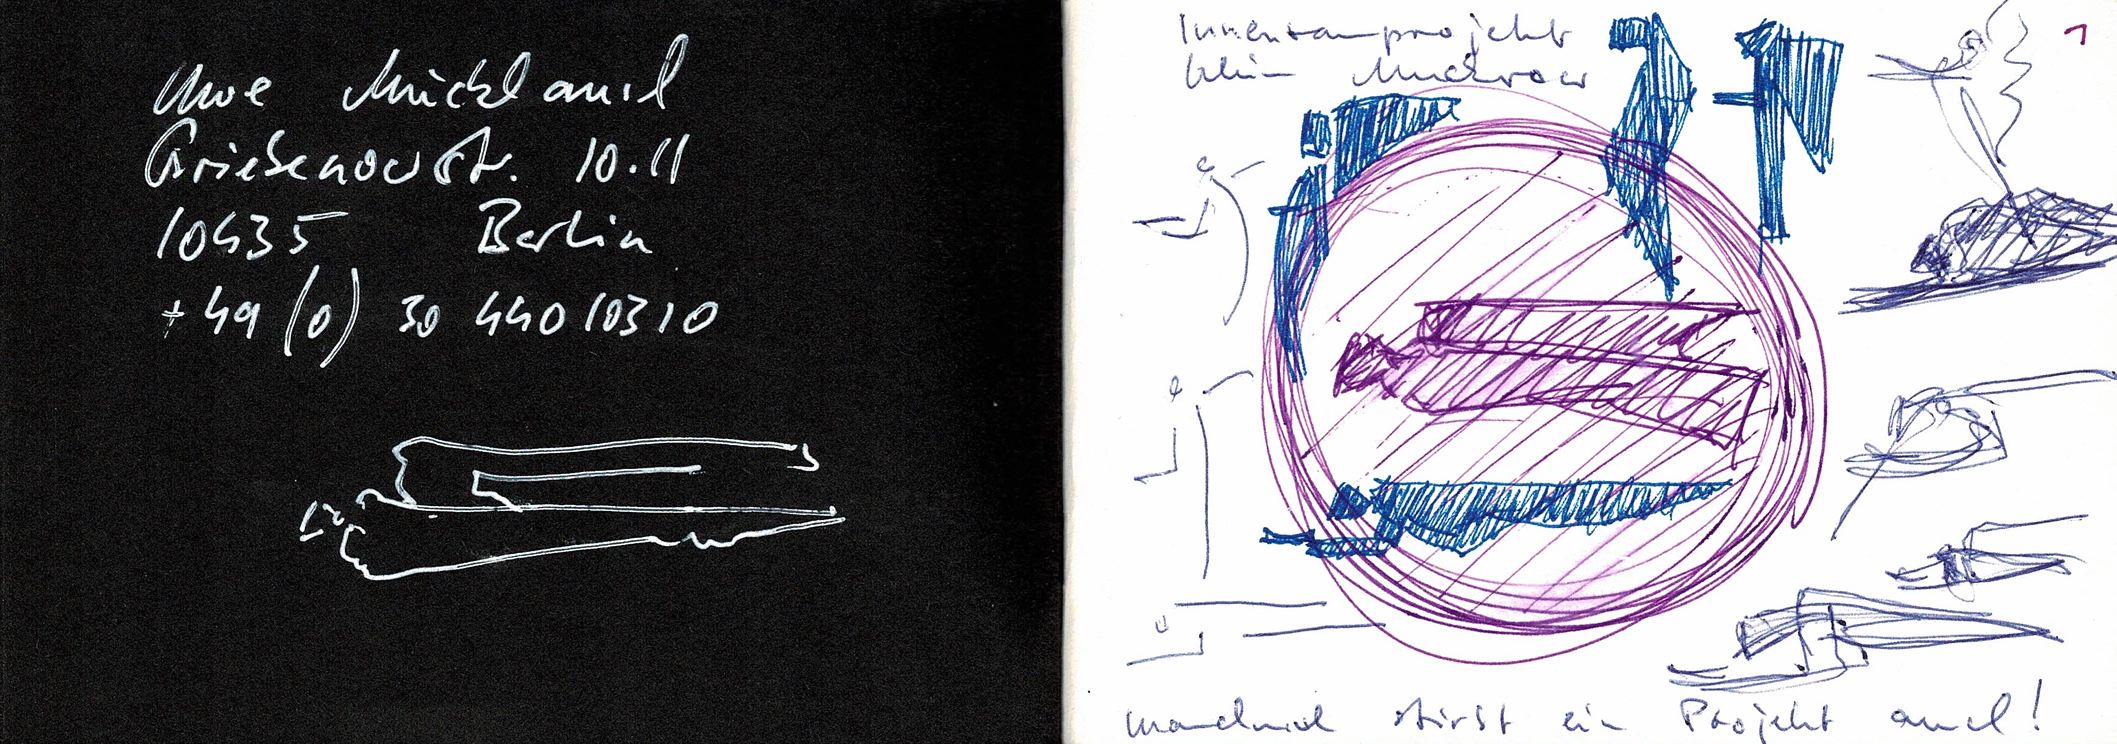 Uwe
Griebenowstr. 10.11
10435 Berlin
+49 (0) 30 44010310
1
Innenraumprojekt
klein Muckrow
manchmal stirbt ein Projekt auch!